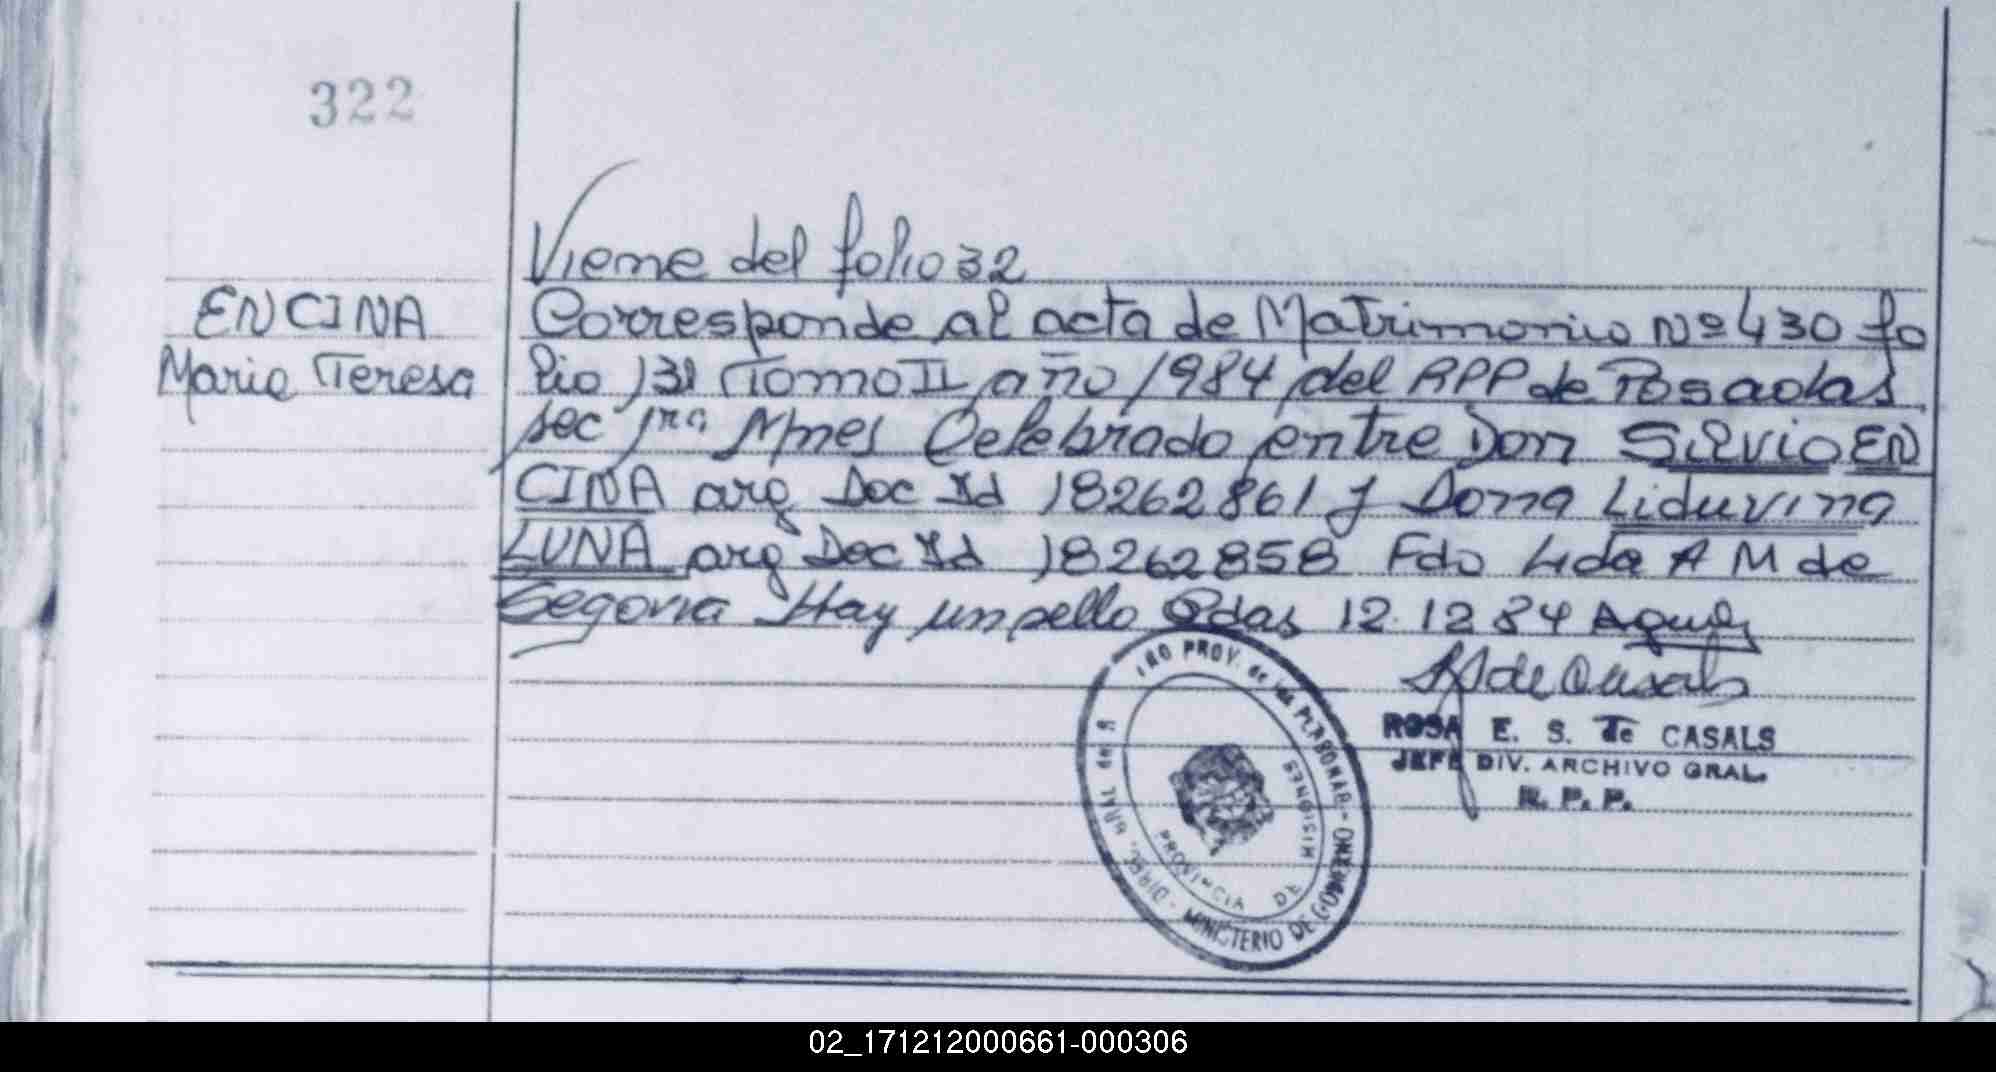 322
Viene del folio 32
ENCINA
Maria Teresa
Corresponde al acta de Matrimonio Nº 430 fo
lio 131 Tomo II año 1984 del RPP de Posadas
sec 1ra Mnes Celebrado entre Don Silvio EN
CINA arg Doc Id 18262861 y Dona Liduvina
LUNA arg Doc Id 18262858 Fdo Lida A M de
Segovia Hay un sello Pdas 12.12 84
de Casals
ROSA E. S. de CASALS
JEFE DIV. ARCHIVO GRAL.
R. P. P.
PROV. de las PERSONAS - MINISTERIO DE GOBIERNO
PROVINCIA DE MISIONES
02_171212000661-000306